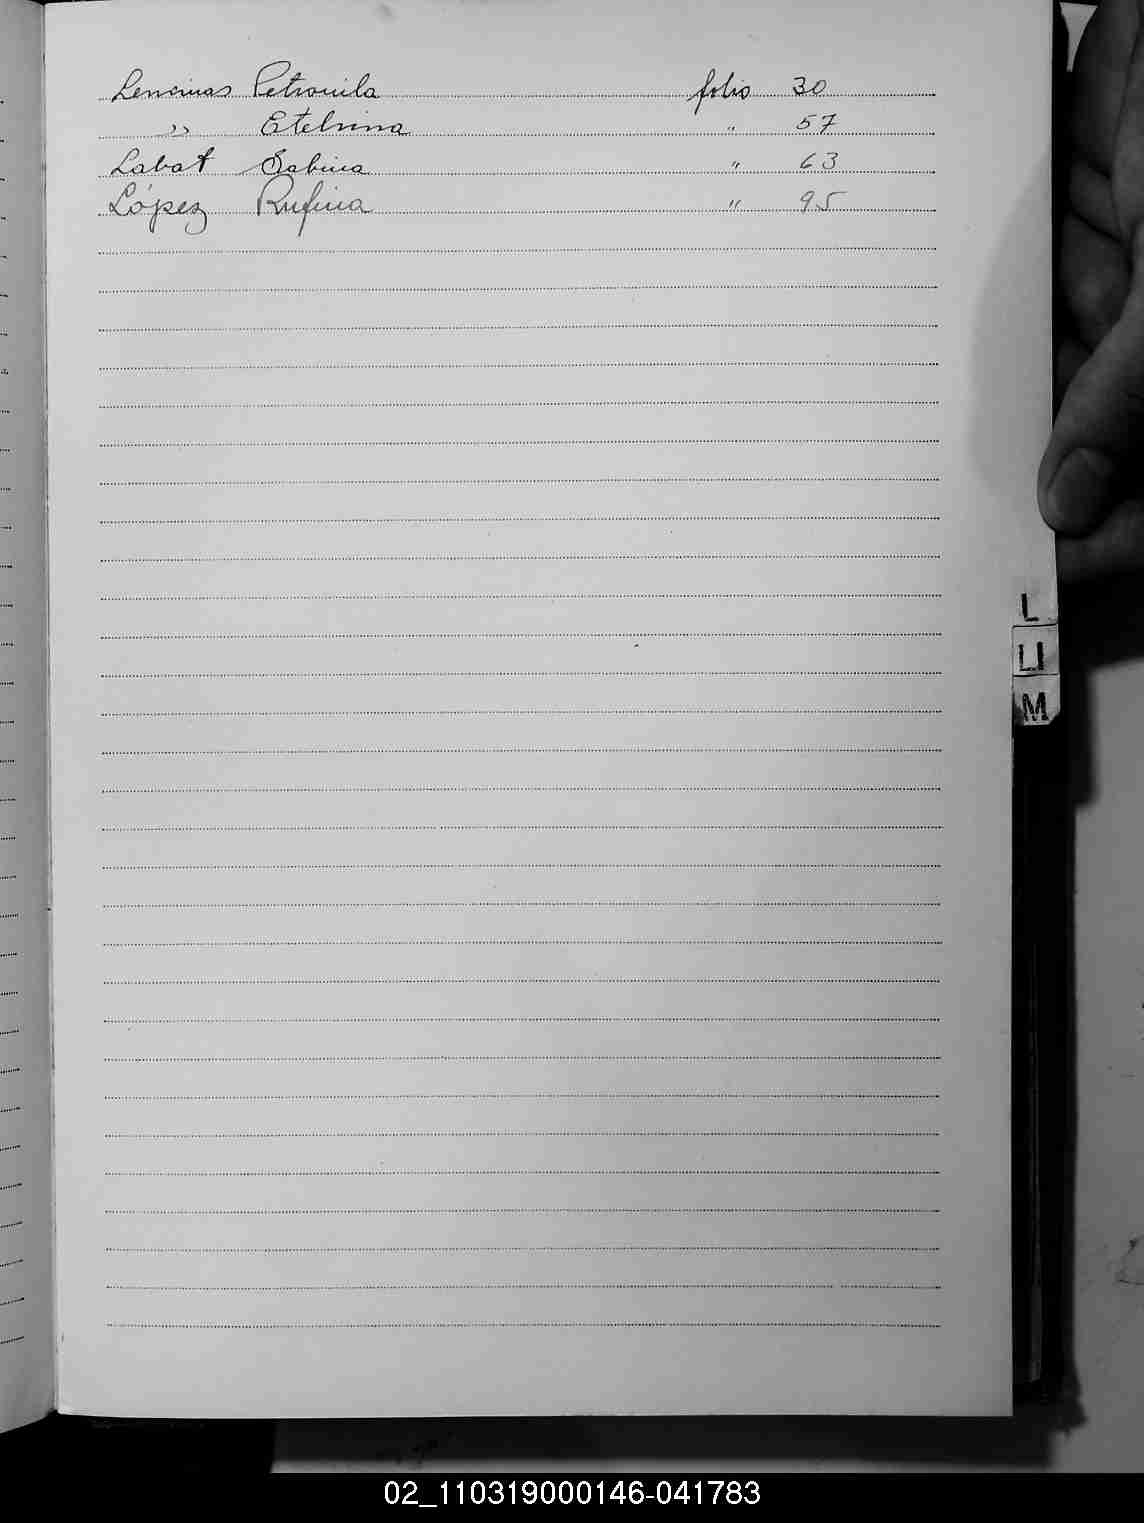 Lencinas Petronila folio 30
" Etelvina " 57
Labat Sabina " 63
López Rufina " 95
L
Ll
M
02_110319000146-041783